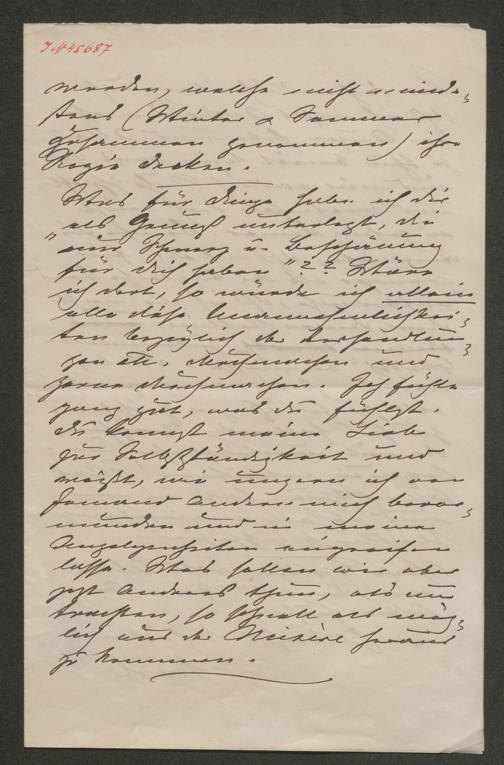 IN 45687
werden, welche nicht minde-
stens (Winter & Sommer
zusammen genommen) ihre
Regie decken.
Was für Dinge habe ich dir
als Grund unterlegt, die
„nur Schmerz u. Beschämung
für dich haben“?? Wäre
ich dort, so würde ich allein
alle diese Unannehmlichkei-
ten bezüglich der Verhandlun-
gen etc. durchmachen und
gerne durchmachen. Ich fühle
ganz gut, was du fühlst.
Du kennst meine Liebe
zur Selbstständigkeit und
weißt, wie ungern ich von
Jemand Anderen mich bevor-
munden und in meine
Angelegenheiten eingreifen
lasse. Was sollen wir aber
jetzt Anderes thun, als nur
trachten, so schnell als mög-
lich aus der Misère heraus
zu kommen.